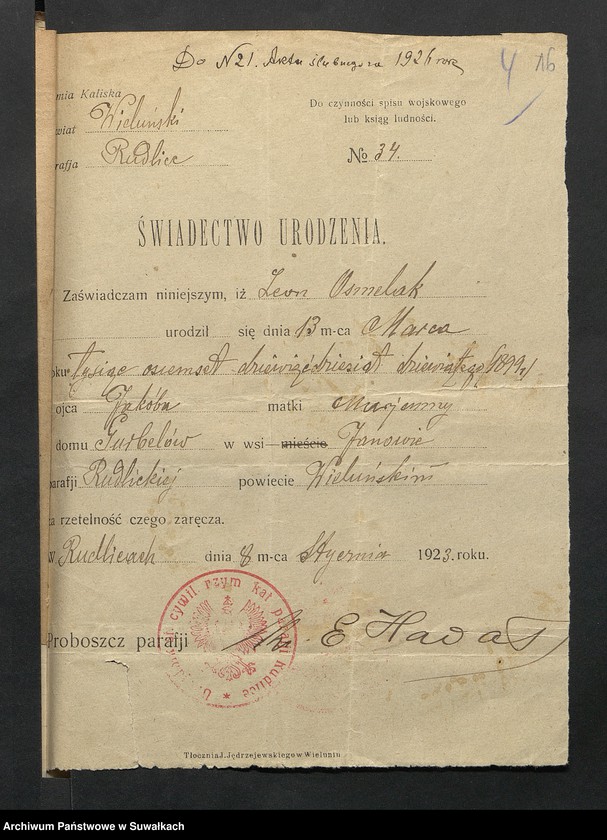 Do N 21. Aktu ślubnego za 1926 rok
4 16
mia Kaliska
wiat Wieluński
rafja Rudlice
Do czynności spisu wojskowego
lub ksiąg ludności.
№ 34.
ŚWIADECTWO URODZENIA.
Zaświadczam niniejszym, iż Leon Osmelak
urodził się dnia 13 m-ca Marca
oku tysiąc osiemset dziewięćdziesiąt dziewiątego 1899 r
ojca Jakóba matki Marjanny
domu Gurbelów w wsi mieście Janowie
parafji Rudlickiej powiecie Wieluńskim
za rzetelność czego zaręcza.
w Rudlicach dnia 8 m-ca Stycznia 1923 roku.
Proboszcz parafji Ks. E Hadaś
cywil. rzym kat parafji Rudlice
Tłocznia J. Jędrzejewskiego w Wieluniu
Archiwum Państwowe w Suwałkach